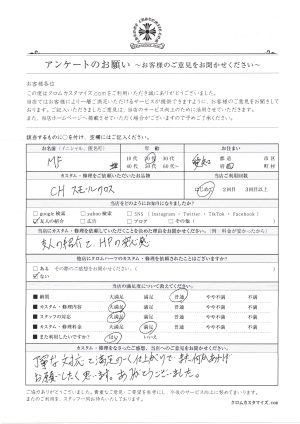 アンケートのお願い ～お客様のご意見をお聞かせください～
お客様各位
この度はクロムカスタマイズ.comをご利用いただき誠にありがとうございました。
当店ではお客様により一層ご満足いただけるサービスが提供できますように、お客様のご意見をお聞きしております。
ご記入いただきましたご意見は、当店のサービス向上のために活用させていただきます。
また、当店ホームページへ掲載させていただく場合がございますので予めご了承ください。
該当するものに○を付け、空欄にはご記入ください。
お名前（イニシャル、匿名可） 年齢 お住まい
MF 様
10代 20代 30代
40代 50代 60代～
愛知 都道府県 市区町村
カスタム・修理をご依頼いただいたお品物 当店ご利用回数
CH スモールクロス
はじめて 2回目 3回目以上
当店をどのようにお知りになりましたか？
□ google 検索 □ yahoo 検索 □ SNS（Instagram・Twitter・TikTok・Facebook）
☑ 友人の紹介 □ 広告 □ ブログ □ その他（ ）
当店にカスタム・修理を依頼していただくことを決めた理由をお聞かせください。（例：料金が安かったから）
友人の紹介で、HPの安心感
他店にクロムハーツのカスタム・修理を依頼されたことはございますか？
□ ある その際のご感想をお聞かせください。（ ）
☑ ない
当店の満足度について教えてください。
■ 納期 大満足 満足 普通 やや不満 不満
■ カスタム・修理内容 大満足 満足 普通 やや不満 不満
■ スタッフの対応 大満足 満足 普通 やや不満 不満
■ カスタム・修理料金 大満足 満足 普通 やや不満 不満
■ また利用したいですか？ はい いいえ
カスタム・修理をなさったご感想、当店へのご意見をお聞かせください。
丁寧な対応で満足のいく仕上がりで また何かあれば
お願いしたく思います。ありがとうございました。
ご協力ありがとうございました。貴重なご意見・ご要望を参考にし、今後のサービス向上に努めてまいります。
またのご利用を、スタッフ一同お待ちいたしております。
クロムカスタマイズ.com